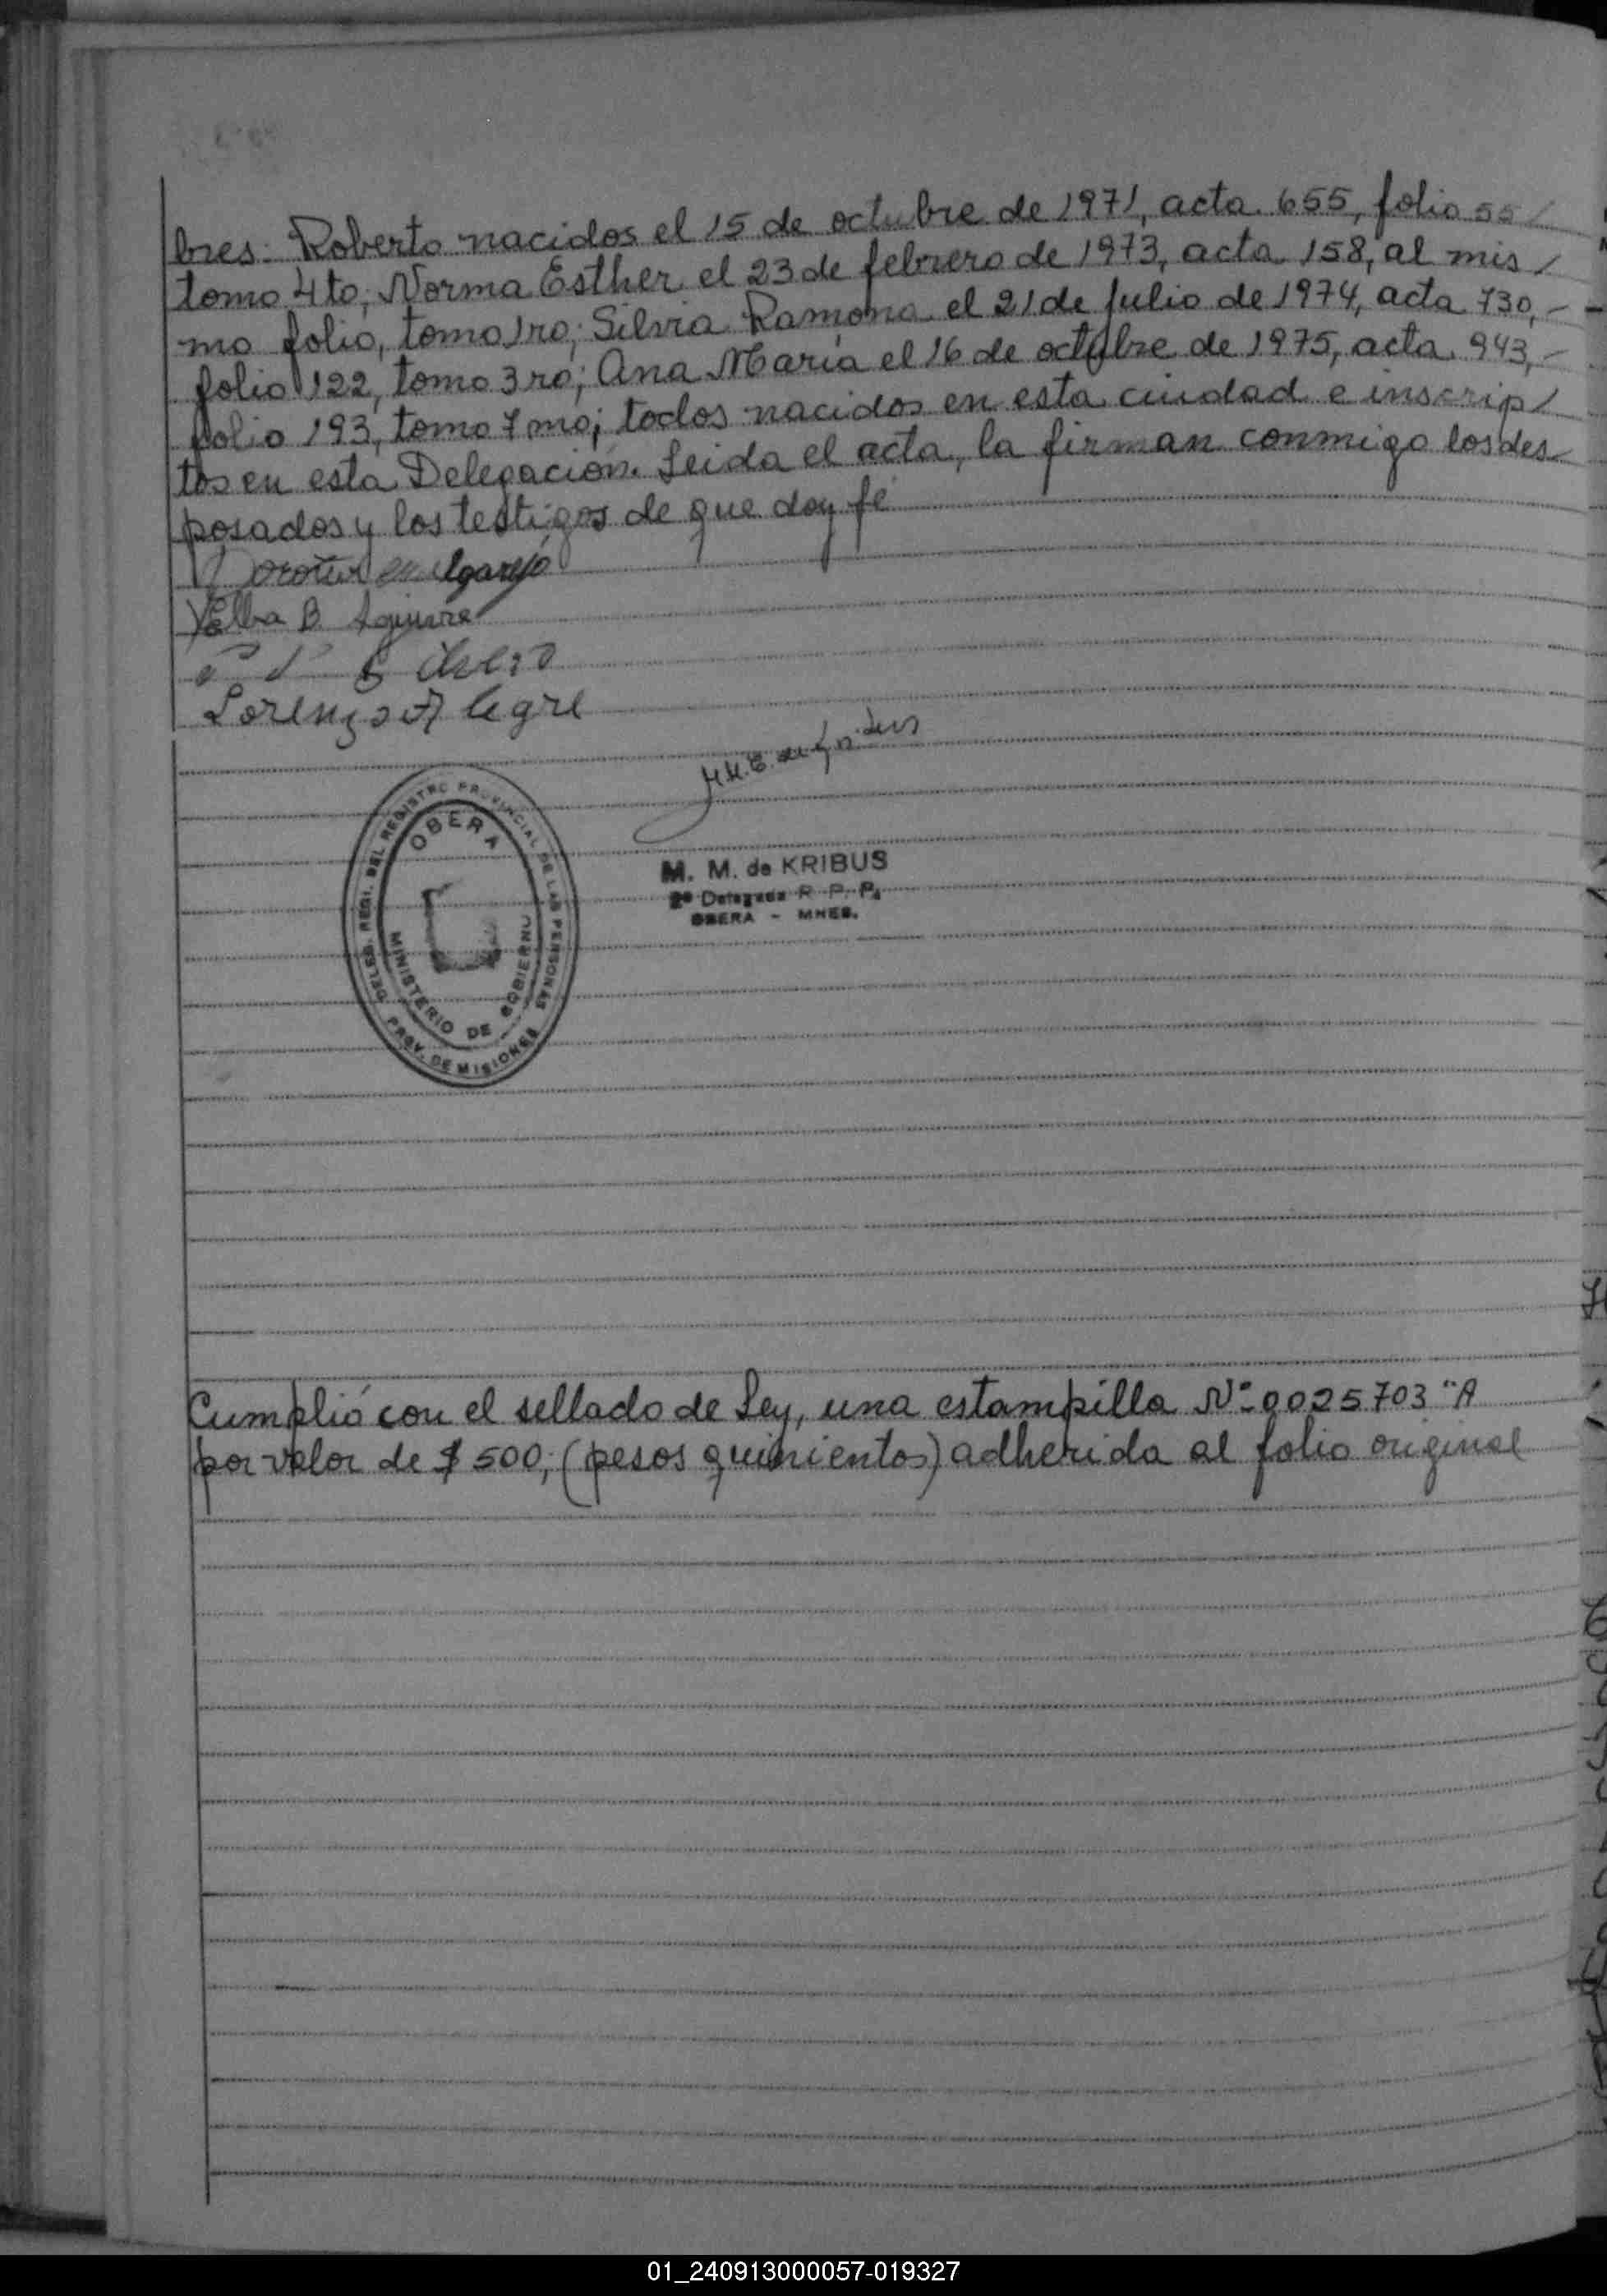 bres: Roberto nacidos el 15 de octubre de 1971, acta 655, folio 55/
tomo 4to; Norma Esther el 23 de febrero de 1973, acta 158, al mis/
mo folio, tomo 1ro; Silvia Ramona el 21 de julio de 1974, acta 730,-
folio 122, tomo 3ro; Ana María el 16 de octubre de 1975, acta 943,-
folio 193, tomo 7mo; todos nacidos en esta ciudad e inscrip/
tos en esta Delegación. Leida el acta, la firman conmigo los des-
posados y los testigos de que doy fé
Yelba B. Aguirre
Lorenzo Alegre
DELEG. REGI. DEL REGISTRO PROVINCIAL DE LAS PERSONAS
OBERA
MINISTERIO DE GOBIERNO
PROV. DE MISIONES
M. M. de KRIBUS
2ª Delegada R. P. P.
OBERA - MNES.
Cumplió con el sellado de Ley, una estampilla Nº 0025703 "A
por valor de $ 500; (pesos quinientos) adherida al folio original
01_240913000057-019327